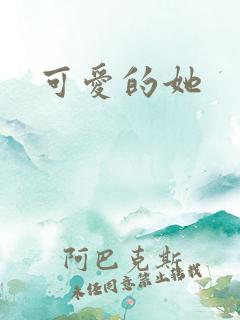 可愛的她
阿巴克斯
未经同意禁止转载